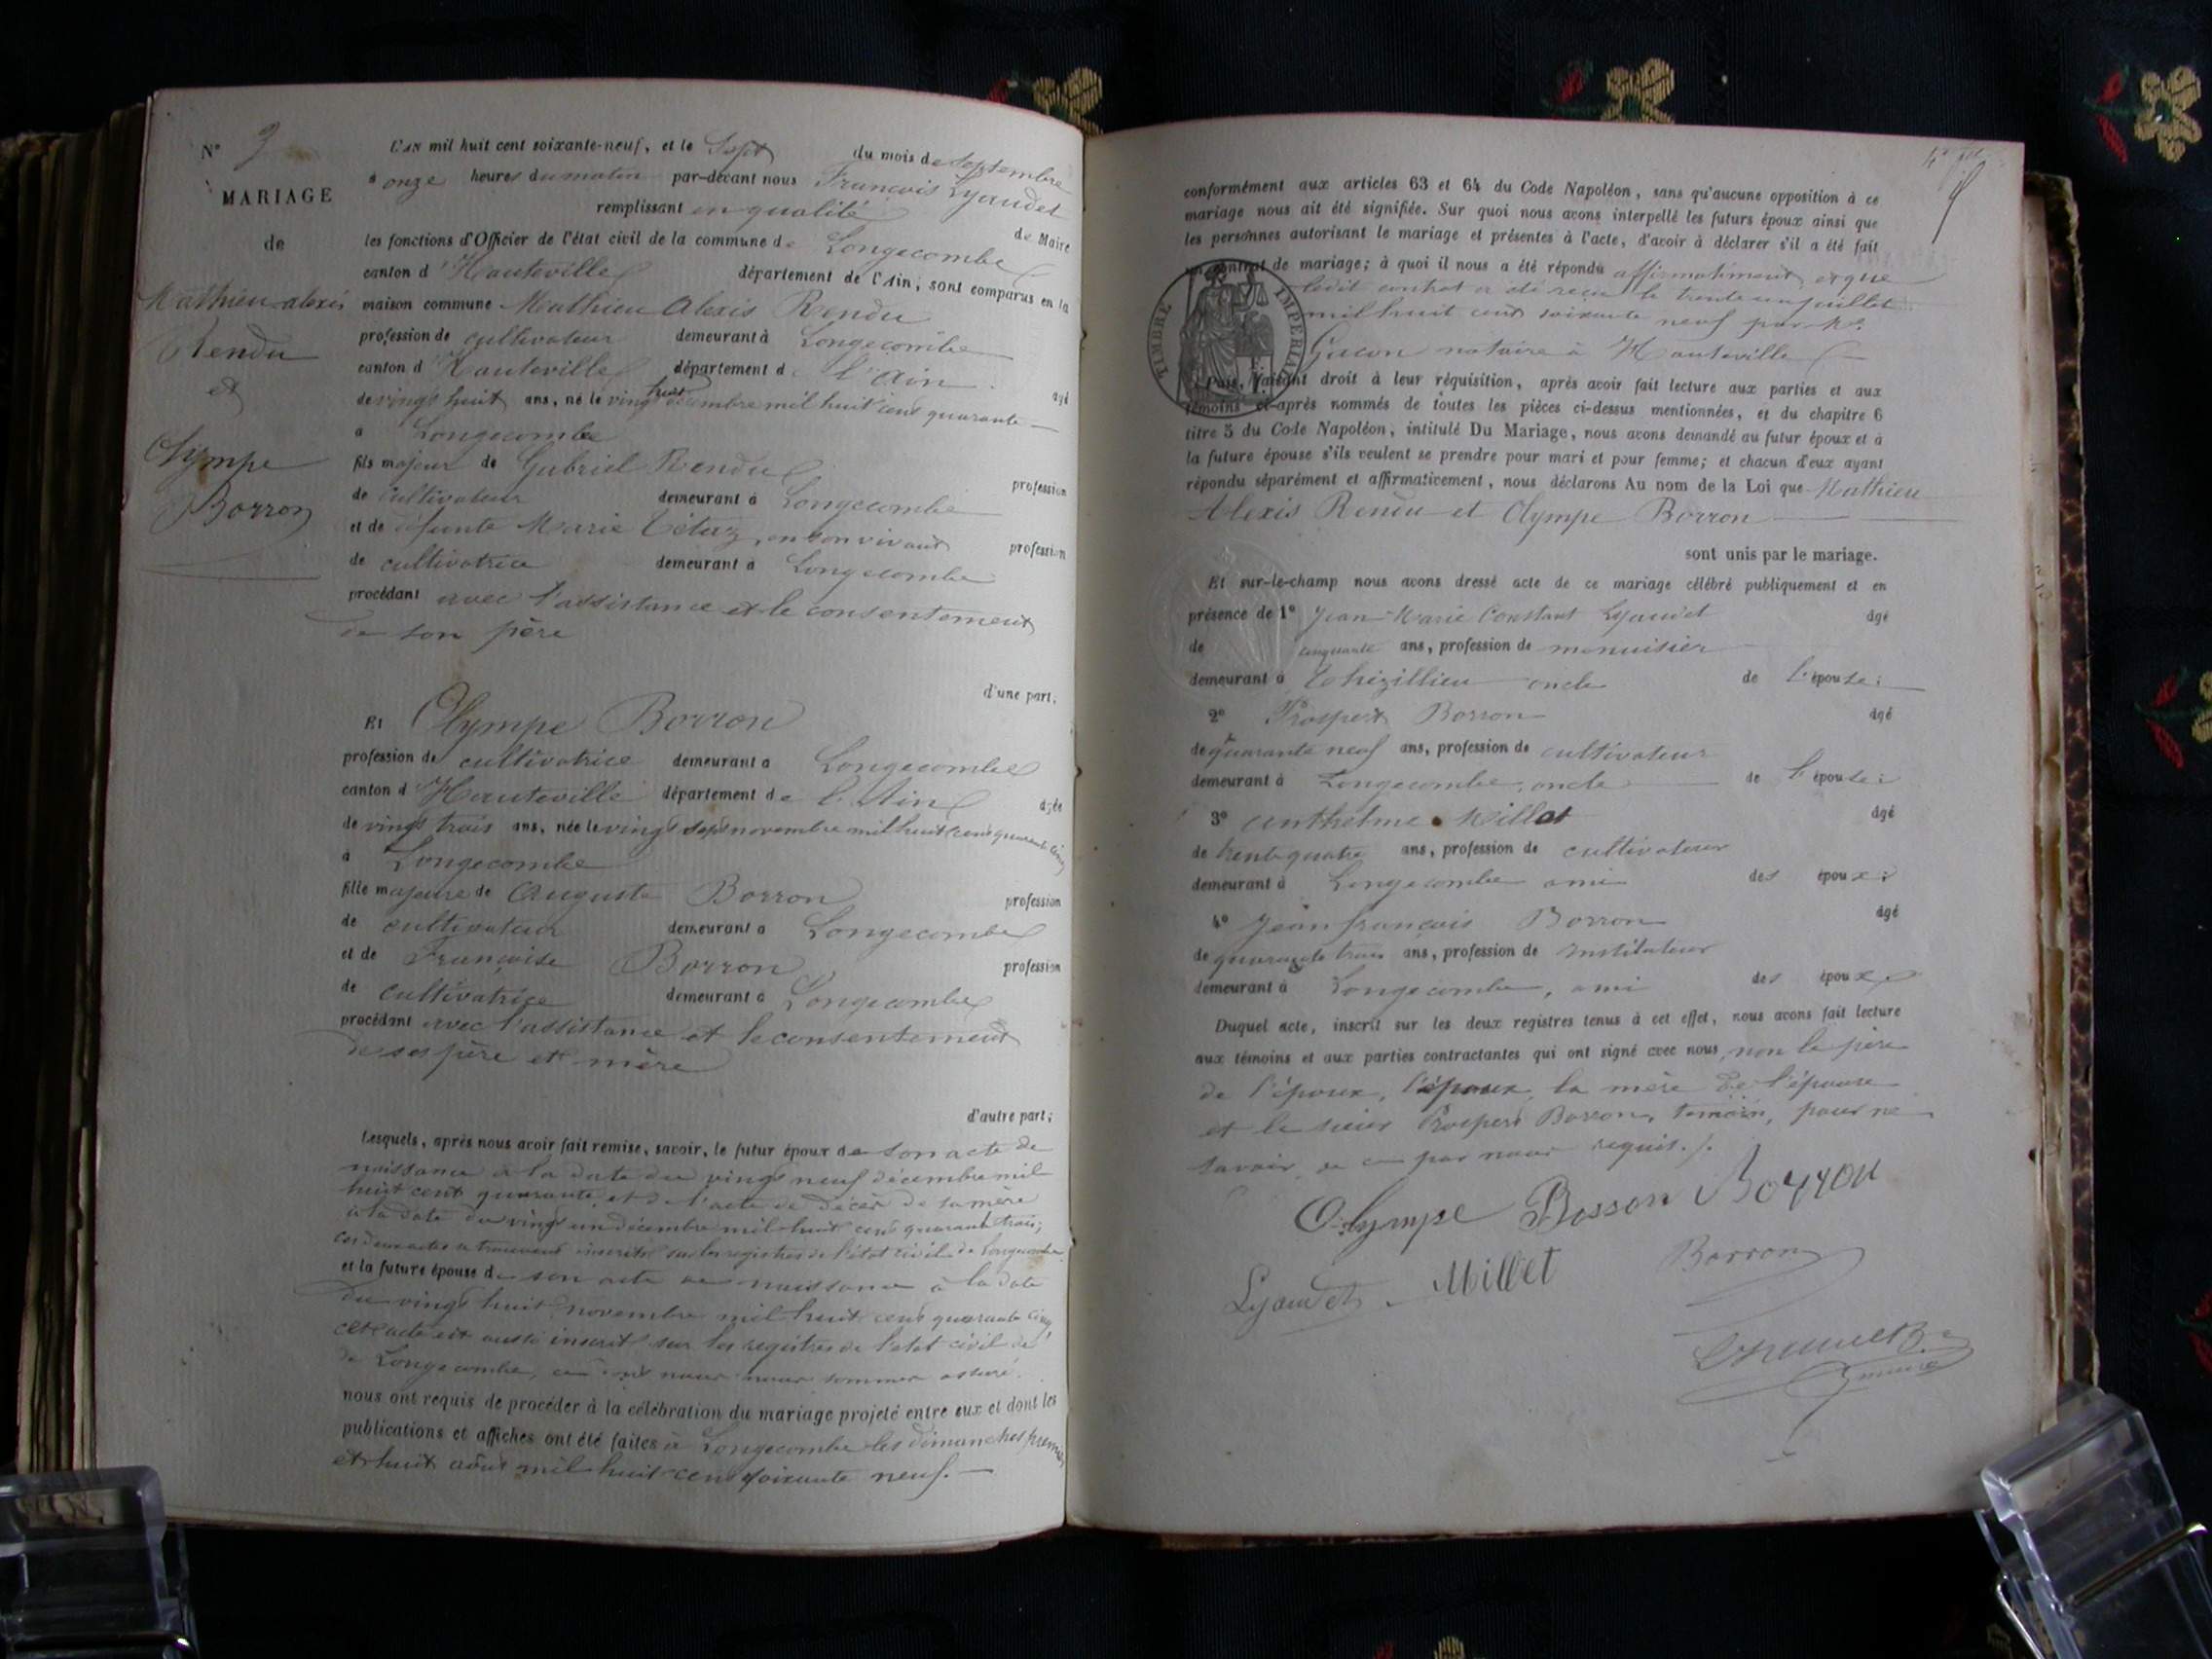 N° 3
MARIAGE
de
Mathieu alexis
Rendu
et
Olympe
Borron
L'AN mil huit cent soixante-neuf, et le Sept du mois de Septembre
à onze heures du matin par-devant nous François Lyaudet
remplissant en qualité de Maire
les fonctions d'Officier de l'état civil de la commune de Longecombe
canton d'Hauteville département de l'Ain, sont comparus en la
maison commune Mathieu Alexis Rendu
profession de cultivateur demeurant à Longecombe
canton d'Hauteville département de l'Ain âgé
de vingt huit ans, né le vingt huit décembre mil huit cent quarante
à Longecombe
fils majeur de Gabriel Rendu profession
de cultivateur demeurant à Longecombe
et de défunte Marie Tétaz, en son vivant profession
de cultivatrice demeurant à Longecombe
procédant avec l'assistance et le consentement
de son père
d'une part,
Et Olympe Borron
profession de cultivatrice demeurant à Longecombe
canton d'Hauteville département de l'Ain âgée
de vingt trois ans, née le vingt sept novembre mil huit cent quarante cinq
à Longecombe
fille majeure de Auguste Borron profession
de cultivateur demeurant à Longecombe
et de Françoise Borron profession
de cultivatrice demeurant à Longecombe
procédant avec l'assistance et le consentement
de ses père et mère
d'autre part;
Lesquels, après nous avoir fait remise, savoir, le futur époux de son acte de
naissance à la date du vingt neuf décembre mil
huit cent quarante et de l'acte de décès de sa mère
à la date du vingt un décembre mil huit cent quarante trois;
ces deux actes se trouvent inscrits sur les registres de l'état civil de Longecombe
et la future épouse de son acte de naissance à la date
du vingt huit novembre mil huit cent quarante cinq
cet acte est aussi inscrit sur les registres de l'état civil de
de Longecombe, ce dont nous nous sommes assuré.
nous ont requis de procéder à la célébration du mariage projeté entre eux et dont les
publications et affiches ont été faites à Longecombe les dimanches premier
et huit août mil huit cent soixante neuf.
conformément aux articles 63 et 64 du Code Napoléon, sans qu'aucune opposition à ce
mariage nous ait été signifiée. Sur quoi nous avons interpellé les futurs époux ainsi que
les personnes autorisant le mariage et présentes à l'acte, d'avoir à déclarer s'il a été fait
un contrat de mariage; à quoi il nous a été répondu affirmativement et que
ledit contrat a été reçu le trente un juillet
mil huit cent soixante neuf par Me
Gacon notaire à Hauteville
TIMBRE IMPERIAL
Puis, faisant droit à leur réquisition, après avoir fait lecture aux parties et aux
témoins ci-après nommés de toutes les pièces ci-dessus mentionnées, et du chapitre 6
titre 5 du Code Napoléon, intitulé Du Mariage, nous avons demandé au futur époux et à
la future épouse s'ils veulent se prendre pour mari et pour femme; et chacun d'eux ayant
répondu séparément et affirmativement, nous déclarons Au nom de la Loi que Mathieu
Alexis Rendu et Olympe Borron
sont unis par le mariage.
Et sur-le-champ nous avons dressé acte de ce mariage célébré publiquement et en
présence de 1° Jean-Marie Constant Lyaudet âgé
de cinquante ans, profession de menuisier
demeurant à Thézillieu oncle de l'épouse;
2° Prosper Borron âgé
de quarante neuf ans, profession de cultivateur
demeurant à Longecombe, oncle de l'épouse;
3° Anthelme Millet âgé
de trente quatre ans, profession de cultivateur
demeurant à Longecombe ami des époux;
4° Jean françois Borron âgé
de quarante trois ans, profession de Instituteur
demeurant à Longecombe, ami des époux
Duquel acte, inscrit sur les deux registres tenus à cet effet, nous avons fait lecture
aux témoins et aux parties contractantes qui ont signé avec nous, non le père
de l'époux, l'époux, la mère de l'épouse
et le sieur Prosper Borron, témoin, pour ne
savoir, de ce par nous requis.
Olympe Borron Borron
Lyaudet Millet Borron